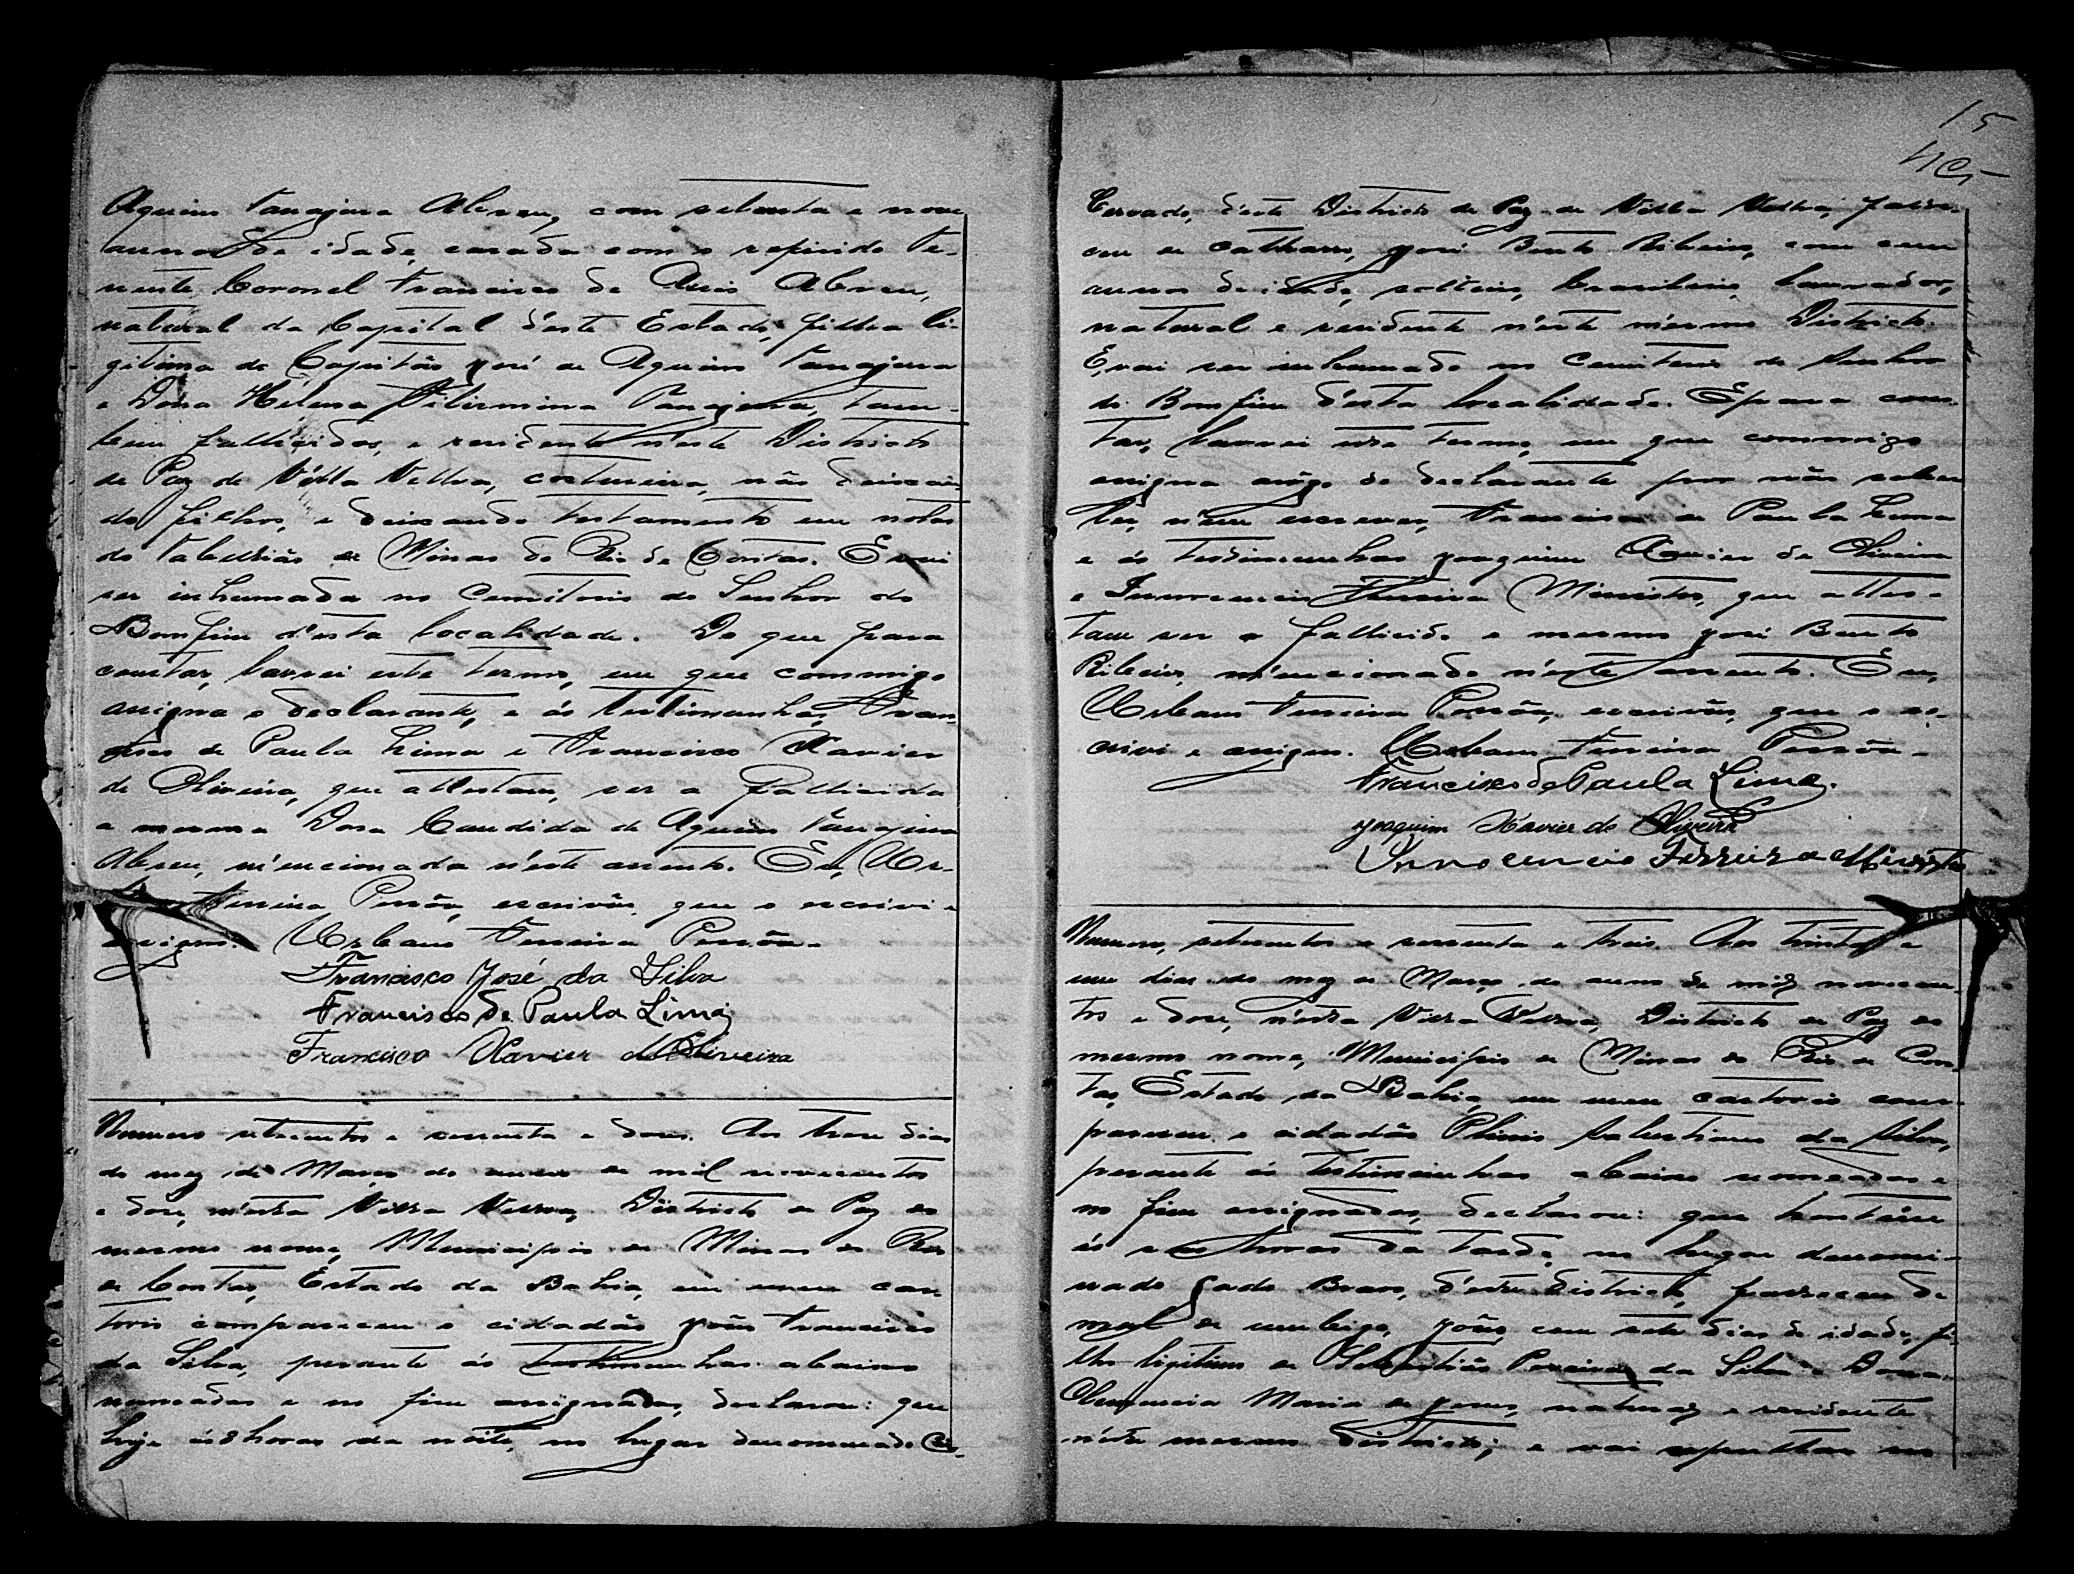 Aquino Tanajura Abreu, com setenta e nove
annos de idade, casada com o referido Te-
nente Coronel Francisco de Assis Abreu,
natural da Capital d'este Estado, filha li-
gitima do Capitão José de Aquino Tanajura
e Dona Helena Tanajura, tam-
bem fallicidos, e residente neste Districto
de Paz de Villa Velha, costureira, não deixan-
do filhos, e deixando testamento em notas
do Tabellião de Minas do Rio de Contas. E vai
ser inhumada no Cemiterio do Senhor do
Bomfim d'esta localidade. Do que para
constar, lavrei este termo, em que commigo
assigna o declarante, e ás testimunhas, Fran-
cisco de Paula Lima e Francisco Xavier
de Oliveira, que attestam, ser a fallicida
a mesma Dona Candida de Aquino Tanajura
Abreu, mencionada n'este assento. Eu, Ur-
Ferreira Pessôa, escrivão, que o escrivi e
assigno. Urbano Ferreira Pessôa.
Francisco José da Silva
Francisco de Paula Lima
Francisco Xavier de Oliveira
Numero setecentos e sessenta e dous. Aos treze dias
do mez de Março do anno de mil novecentos
e doze, n'esta Villa Velha, Districto de Paz do
mesmo nome, Municipio de Minas do Rio
de Contas, Estado da Bahia, em meu car
torio compareceu o cidadão João Francisco
da Silva, perante ás testimunhas abaixo
nomeadas e no fim assignadas, declarou: que
hoje ás 8 horas da noite, no lugar denominado
15
d'este Districto de Paz de Villa Velha, falle-
ceu de catharro, José Bento Ribeiro, com cem
annos de idade, solteiro, brasileiro, lavrador,
natural e residente n'este mesmo Districto.
E vai ser inhumado no Cemiterio do Senhor
do Bomfim d'esta localidade. E para cons-
tar, lavrei este termo, em que commigo
assigna arôgo do declarante por não saber
ler, nem escrever, Francisco de Paula Lima
e ás testimunhas Joaquim Xavier de Oliveira
e Innocencio Ferreira Ministro, que attes-
tam ser o fallicido o mesmo José Bento
Ribeiro, mencionado n'este assento. Eu,
Urbano Ferreira Pessôa, escrivão, que o es-
crivi e assigno. Urbano Ferreira Pessôa.
Francisco de Paula Lima.
Joaquim Xavier de Oliveira
Innocencio Ferreira Ministro
Numero, setecentos e sessenta e tres. Aos trinta e
um dias do mez de Março do anno de mil novecen-
tos e doze, n'esta Villa Velha, Districto de Paz do
mesmo nome, Municipio de Minas do Rio de Con-
tas, Estado da Bahia, em meu cartorio com-
pareceu o cidadão Plinio Salustiano da Silva,
perante ás testimunhas abaixo nomeadas e
no fim assignadas, declarou: que hontem
ás horas da tarde, no lugar denomi-
nado Gado Bravo, d'este districto, falleceu de
mal de umbigo, João, com sete dias de idade, fi-
lho ligitimo de Sebastião Pereira da Silva e Dona
Maria de Jesus, naturaes e residente
n'este mesmo districto; e vai sepultar no